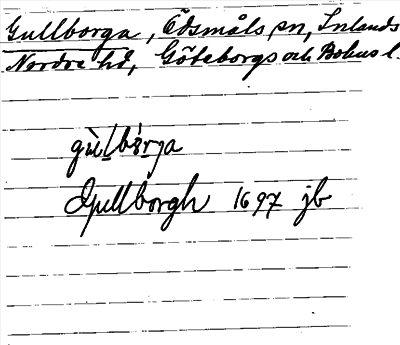 Gullborga, Ödsmåls sn, Inlands
Nordre hd, Göteborgs och Bohus l.
Gullborgh 1697 jb